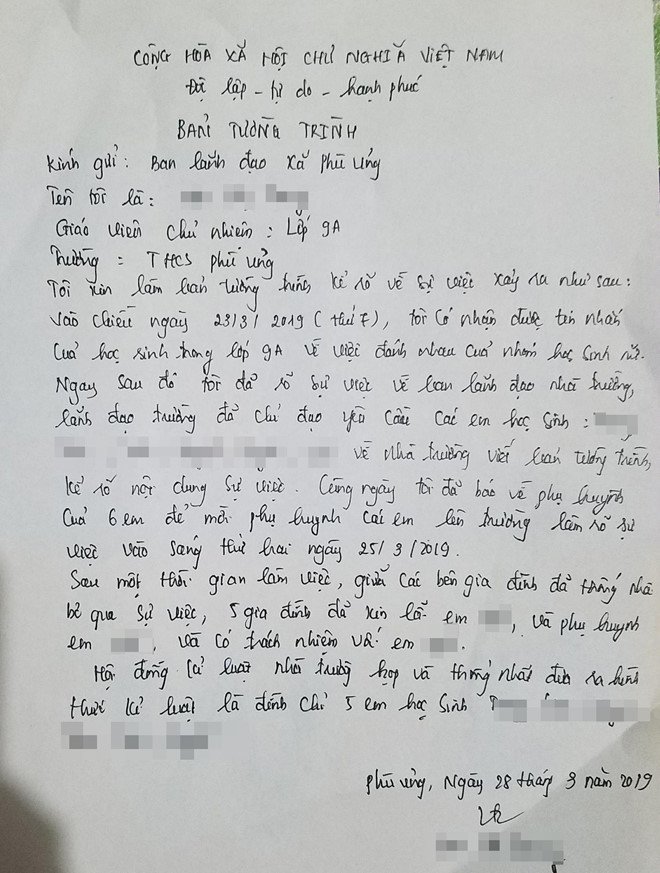 CỘNG HÒA XÃ HỘI CHỦ NGHĨA VIỆT NAM
Độ lập - tự do - hạnh phúc
BẢN TƯỜNG TRÌNH
Kính gửi: Ban lãnh đạo xã Phù Ủng
Tên tôi là:
Giáo viên chủ nhiệm: Lớp 9A
Trường: THCS Phù Ủng
Tôi xin làm bản tường trình kể rõ về sự việc xảy ra như sau:
Vào chiều ngày 23/3/2019 (thứ 7), tôi có nhận được tin nhắn
của học sinh trong lớp 9A về việc đánh nhau của nhóm học sinh nữ.
Ngay sau đó tôi đã rõ sự việc về ban lãnh đạo nhà trường,
lãnh đạo trường đã chỉ đạo yêu cầu các em học sinh:
về nhà trường viết bản tường trình,
kể rõ nội dung sự việc. Cùng ngày tôi đã báo về phụ huynh
của 6 em để mời phụ huynh các em lên trường làm rõ sự
việc vào sáng thứ hai ngày 25/3/2019.
Sau một thời gian làm việc, giữa các bên gia đình đã thống nhất
bỏ qua sự việc, 5 gia đình đã xin lỗi em , và phụ huynh
em , và có trách nhiệm với em .
Hội đồng kỉ luật nhà trường họp và thống nhất đưa ra hình
thức kỉ luật là đình chỉ 5 em học sinh
Phù Ủng, Ngày 28 tháng 3 năm 2019